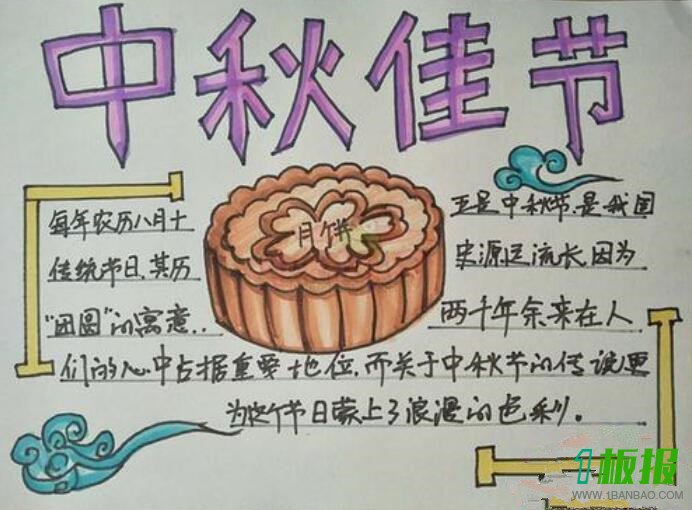 中秋佳节
月饼
每年农历八月十五是中秋节,是我国
传统节日,其历史源远流长,因为
“团圆”的寓意,.两千年余来在人
们的心中占据重要地位,而关于中秋节的传说更
为这个节日蒙上了浪漫的色彩。
1板报
WWW.1BANBAO.COM